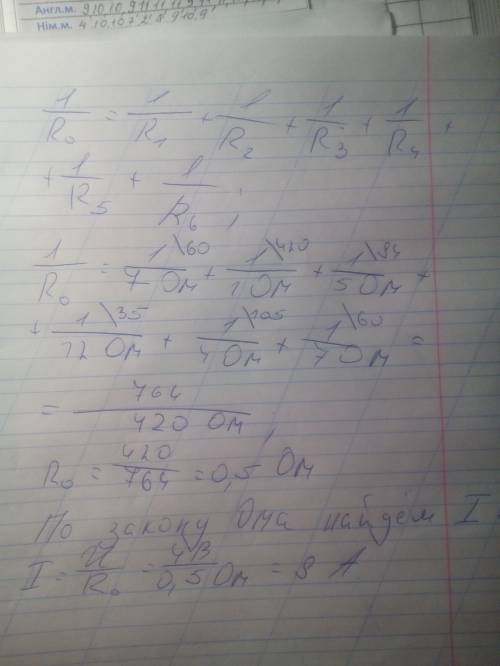 Англ.м. 9,10,10,9,11,11,11,9
Нім.м. 4,10,10,7,2,8,9,10,9
1/R₀ = 1/R₁ + 1/R₂ + 1/R₃ + 1/R₄ +
+ 1/R₅ + 1/R₆ ;
1/R₀ = 1\60/7 Ом + 1\420/1 Ом + 1\84/5 Ом +
+ 1\35/12 Ом + 1\105/4 Ом + 1\60/7 Ом =
= 764/420 Ом ,
R₀ = 420/764 = 0,5 Ом
По закону Ома найдём I
I = U/R₀ = 4В/0,5 Ом = 8 А